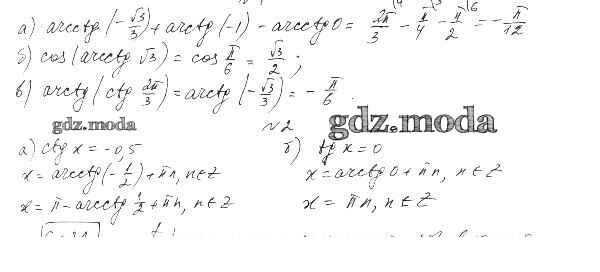 а) arcctg(-√3/3) + arctg(-1) - arcctg 0 = 2π/3 - π/4 - π/2 = -π/12
б) cos(arcctg √3) = cos π/6 = √3/2 ;
в) arctg(ctg 2π/3) = arctg(-√3/3) = -π/6 .
gdz.moda №2 gdz.moda
а) ctg x = -0,5 б) tg x = 0
x = arcctg(-1/2) + πn, n∈Z x = arctg 0 + πn, n∈Z
x = π - arcctg 1/2 + πn, n∈Z x = πn, n∈Z